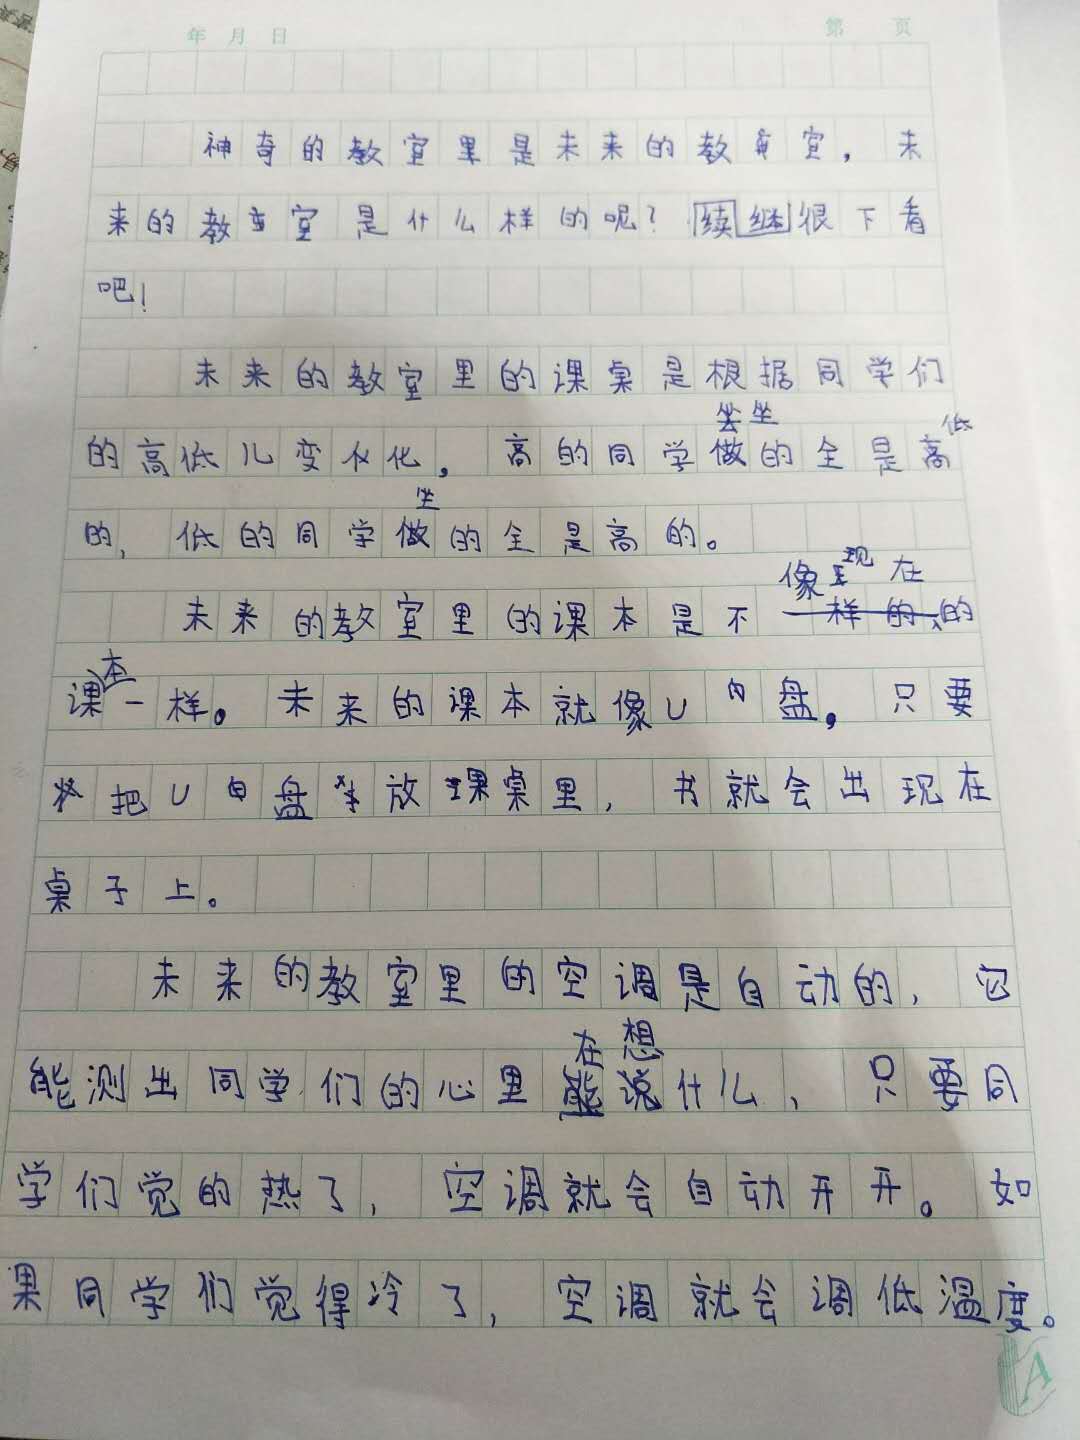 年 月 日 第 页
神奇的教室里是未来的教室，未
来的教室是什么样的呢？续继很下看
吧！
未来的教室里的课桌是根据同学们
的高低儿变化，高的同学坐的全是低
的，低的同学坐的全是高的。
未来的教室里的课本是不像现在的
课本一样。未来的课本就像U盘，只要
把U盘放课桌里，书就会出现在
桌子上。
未来的教室里的空调是自动的，它
能测出同学们的心里在想什么，只要同
学们觉的热了，空调就会自动开开。如
果同学们觉得冷了，空调就会调低温度。
A